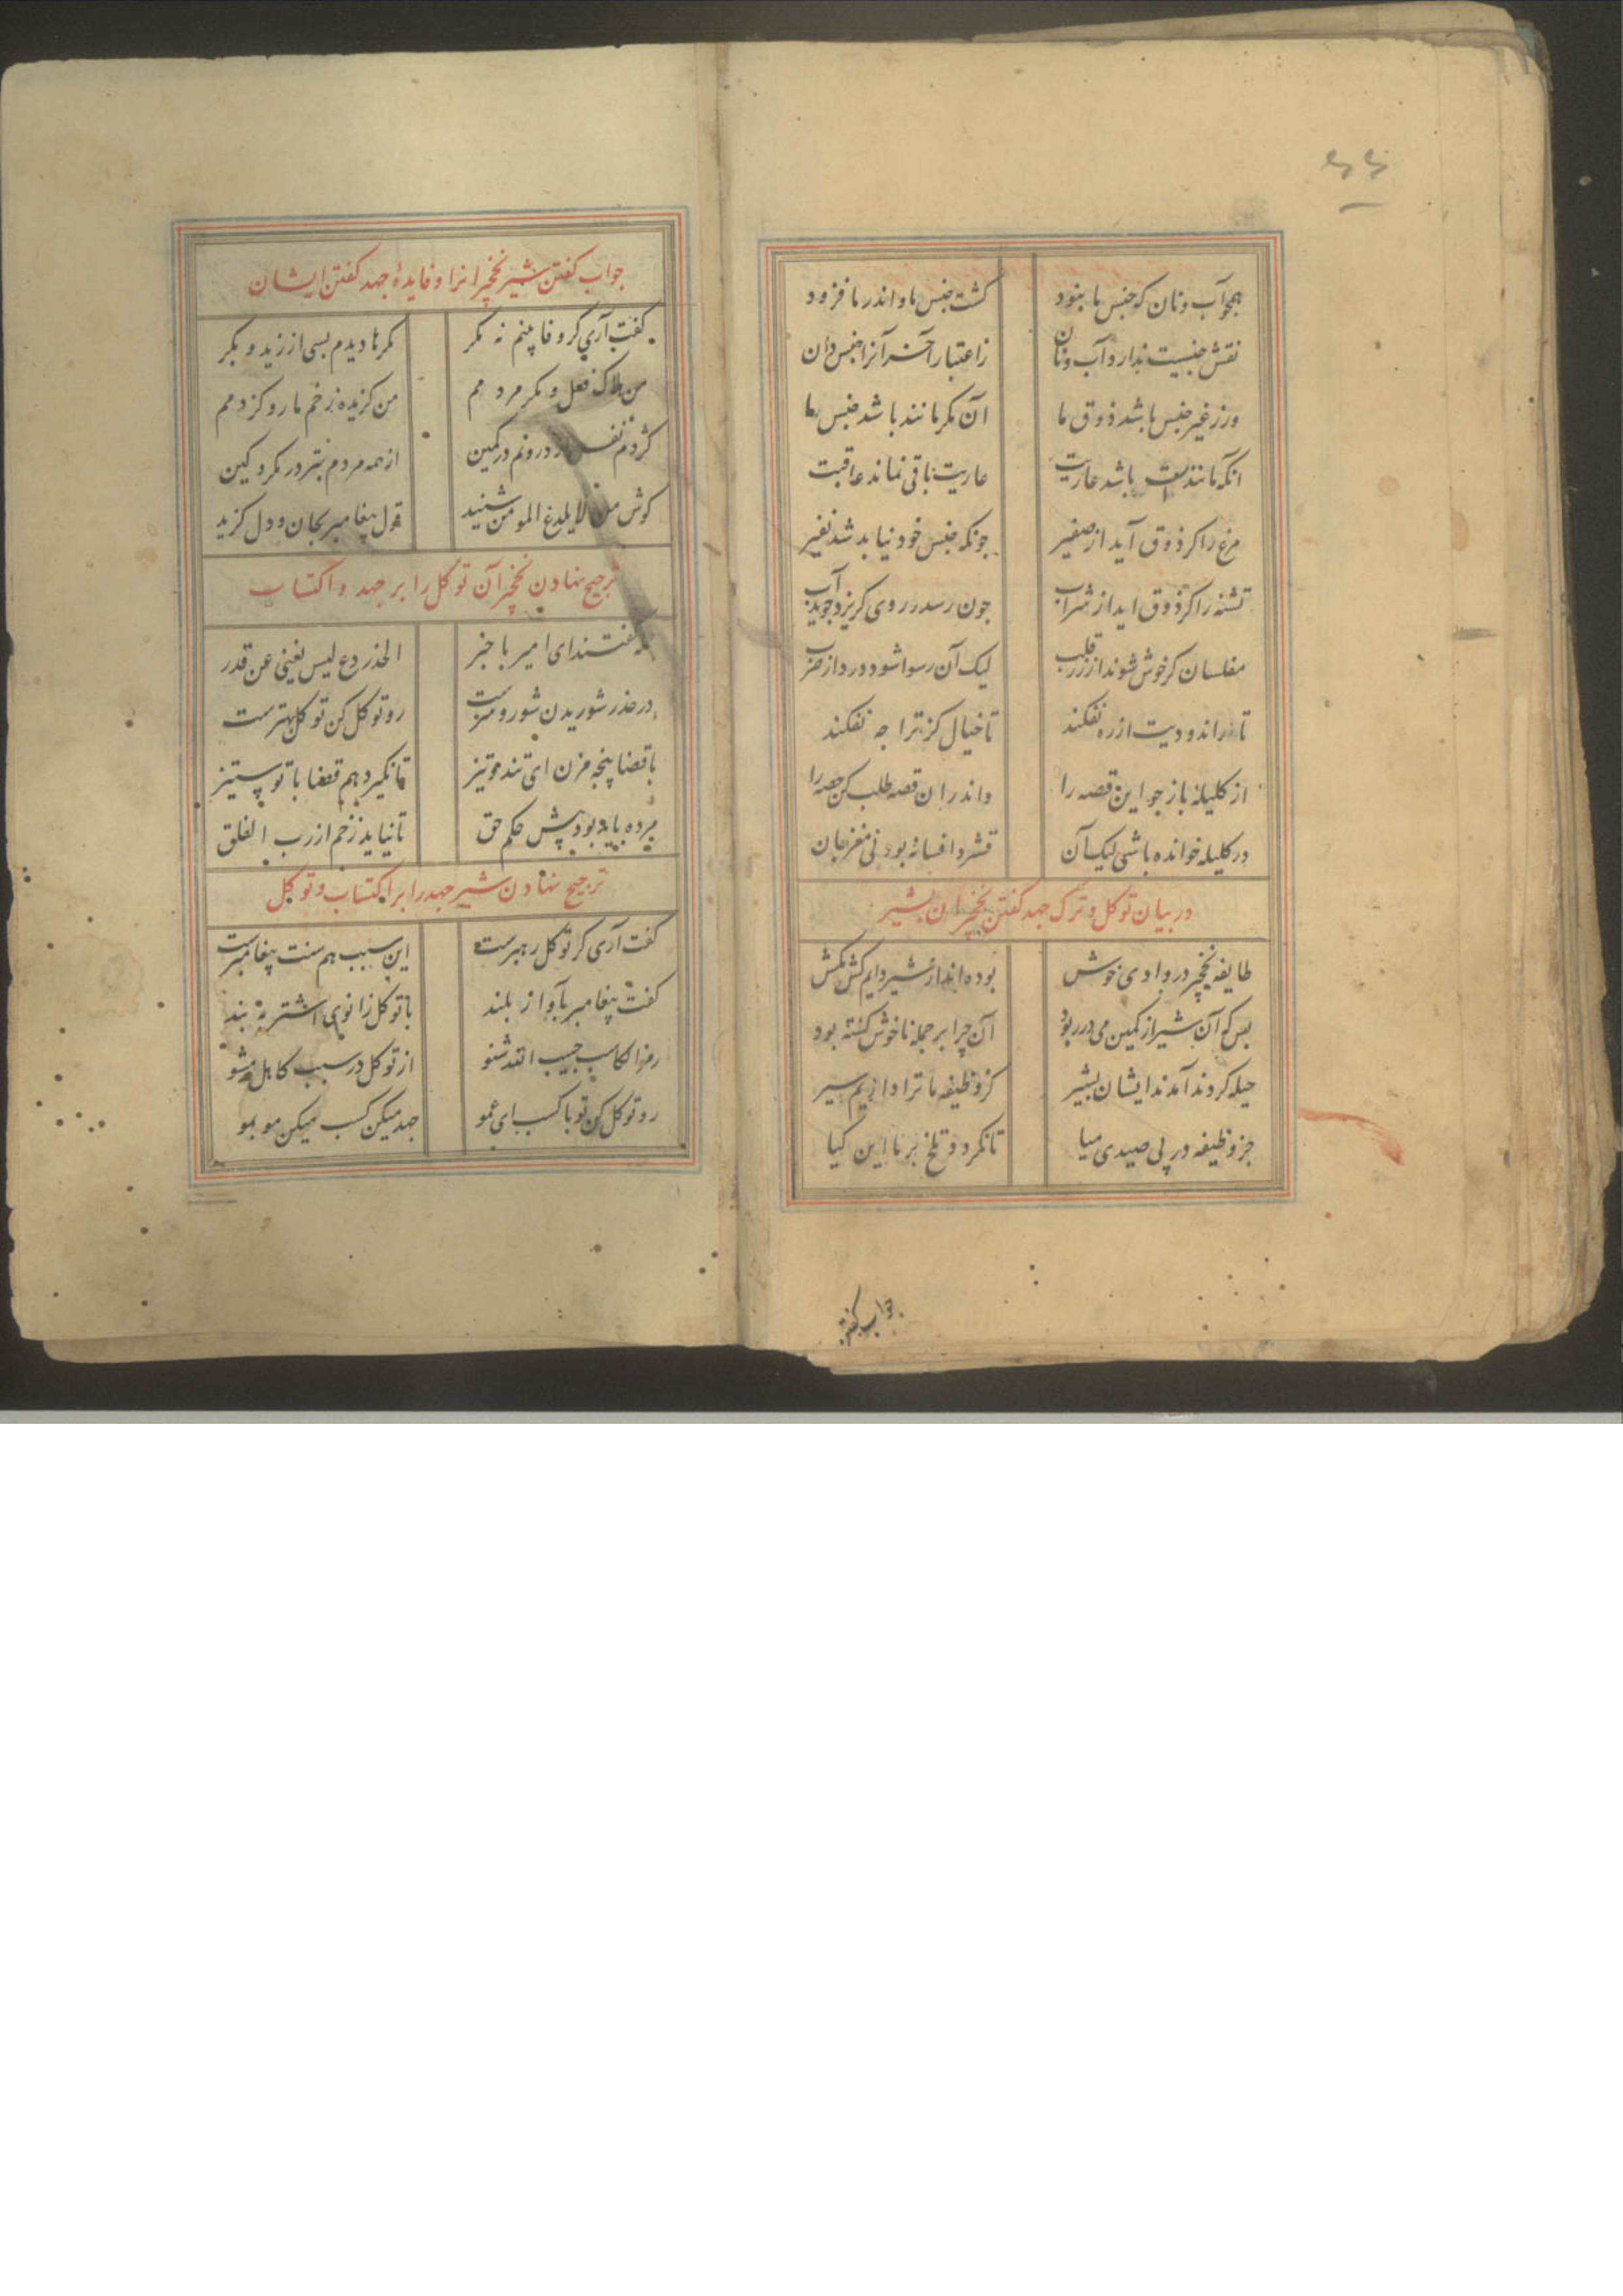 همچو آب و نان که جنس ما نبود	کشت جنس ما و اندر ما فزود
نقش جنسیت ندارد آب و نان	ز اعتبار آخر آنرا جنس دان
ور ز غیر جنس باشد ذوق ما	آن مکر مانند باشد جنس را
انکه مانندست باشد عاریت	عاریت باقی نماند عاقبت
مرغ را کر ذوق آید از صفیر	چونکه جنس خود نیابد شد نفیر
تشنه را کر ذوق اید از شراب	چون رسد در وی کریزد جوید آب
مفلسان کر خوش شوند از زر قلب	لیک آن رسوا شود در دار ضرب
تا زر اندودیت از ره نفکند	تا خیال کژ ترا چه نفکند
از کلیله باز جو این قصه را	واندر ان قصه طلب کن حصه را
در کلیله خوانده باشی لیک آن	قشر و افسانه بود نی مغز جان
در بیان توکل و ترک جهد کفتن نخچیران بشیر
طایفه نخچیر در وادی خوش	بوده اند از شیر دایم کش مکش
بس که آن شیر از کمین می در ربود	آن چرا بر جمله ناخوش کشته بود
حیله کردند آمدند ایشان بشیر	کز وظیفه ما ترا داریم سیر
جز وظیفه در پی صیدی میا	تا نکردد تلخ بر ما این کیا
جواب کفتن
جواب کفتن شیر نخچیرانرا و فایدهٔ جهد کفتن ایشان
کفت آری کر وفا بینم نه مکر	مکرها دیدم بسی از زید و بکر
من هلاک فعل و مکر مردمم	من کزیده زخم مار و کژدمم
کژدم نفس از درونم در کمین	از همه مردم بتر در مکر و کین
کوش من لا یلدغ المومن شنید	قول پیغامبر بجان و دل کزید
ترجیح نهادن نخچیرآن توکل را بر جهد و اکتساب
جمله کفتند ای امیر با خبر	الحذر دع لیس یغنی عن قدر
در حذر شوریدن شور و شرست	رو توکل کن توکل بهترست
با قضا پنجه مزن ای تند و تیز	تا نکیرد هم قضا با تو ستیز
مرده باید بود پیش حکم حق	تا نیاید زخم از رب الفلق
ترجیح نهادن شیر جهد را بر اکتساب و توکل
کفت آری کر توکل رهبرست	این سبب هم سنت پیغامبرست
کفت پیغامبر بآواز بلند	با توکل زانوی اشتر به بند
رمز الکاسب حبیب الله شنو	از توکل در سبب کاهل مشو
رو توکل کن تو با کسب ای عمو	جهد میکن کسب میکن مو بمو